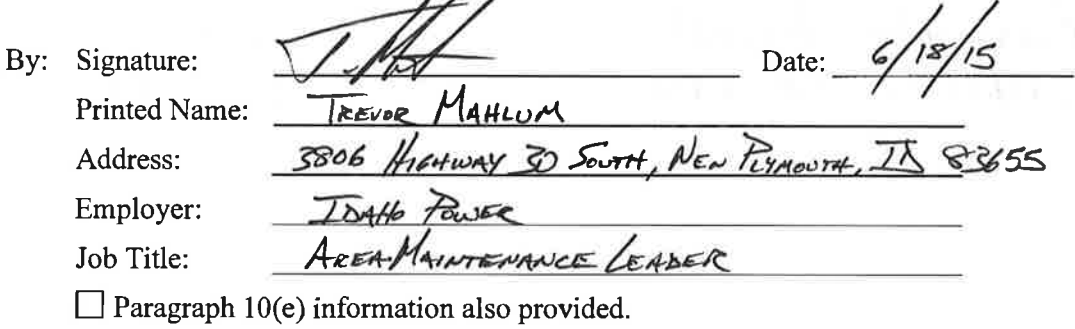 By: Signature: Date: 6/18/15
Printed Name: TREVOR MAHLUM
Address: 3806 HIGHWAY 30 SOUTH, NEW PLYMOUTH, ID 83655
Employer: IDAHO POWER
Job Title: AREA MAINTENANCE LEADER
☐ Paragraph 10(e) information also provided.